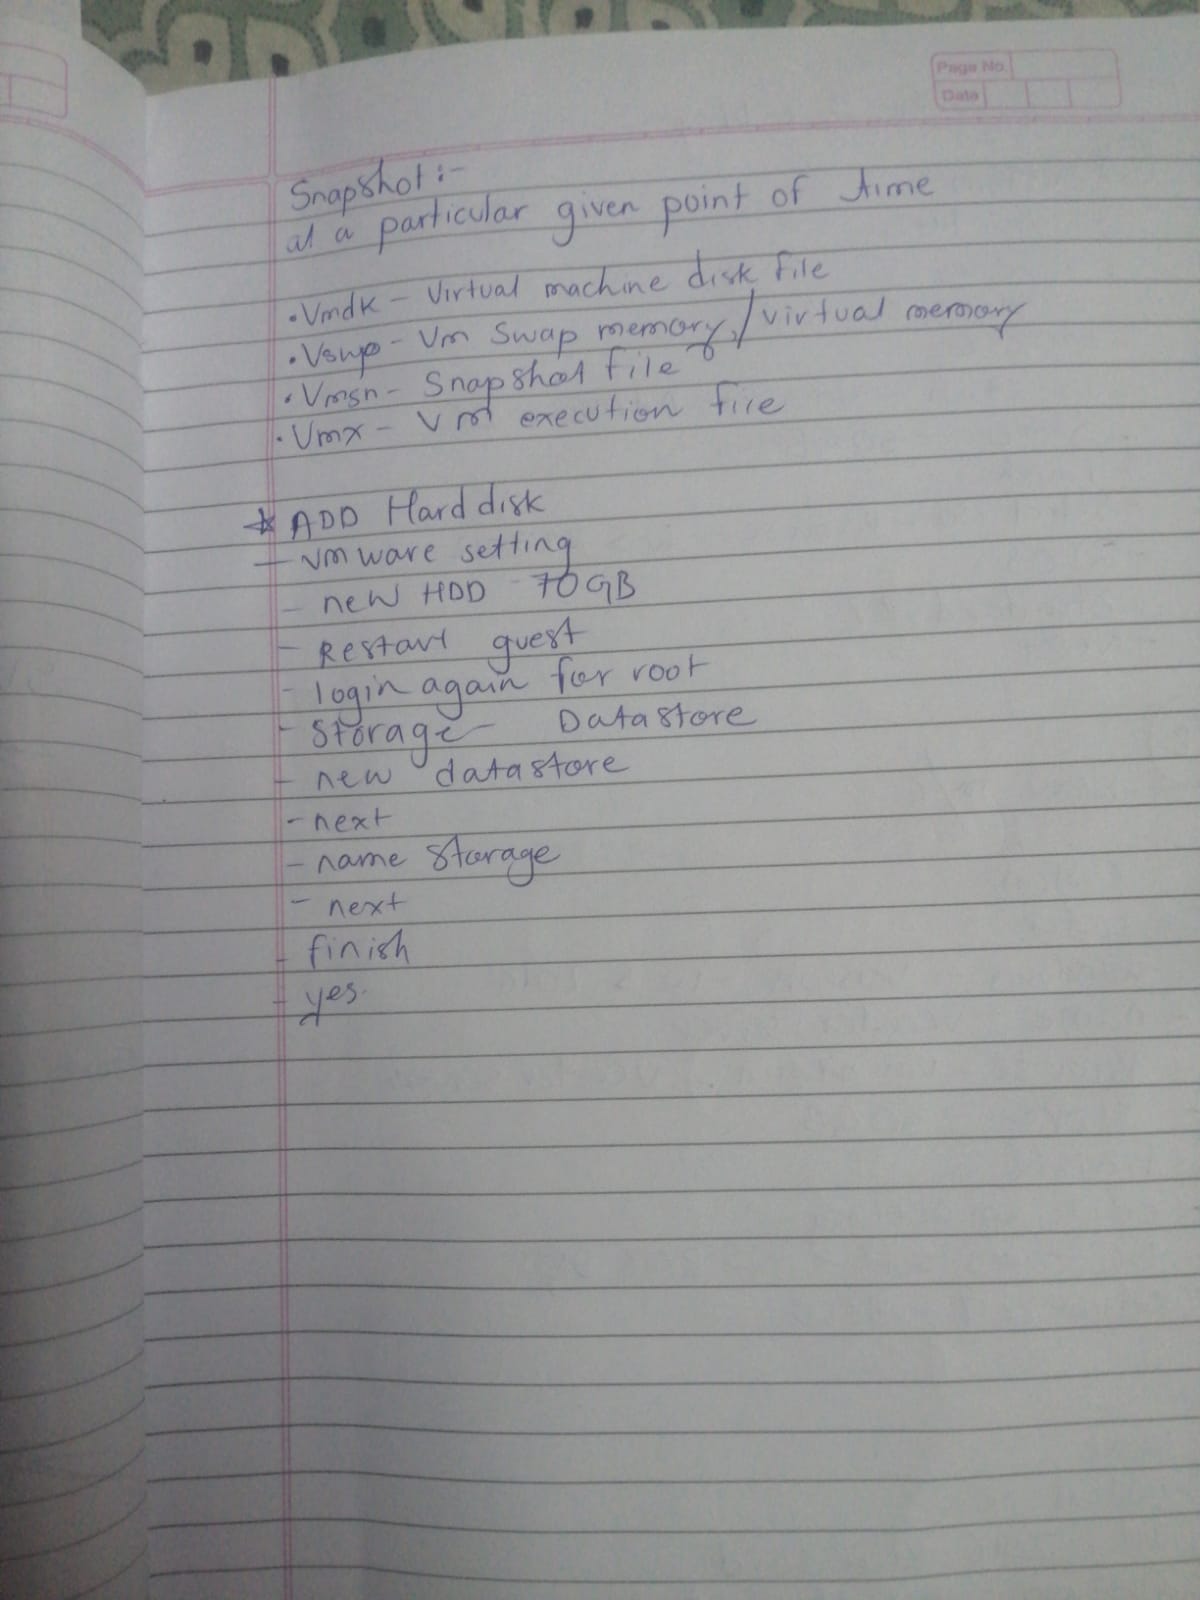 Page No
Date
Snapshot :-
at a particular given point of time
• Vmdk - Virtual machine disk file
• Vswp - Vm Swap memory / virtual memory
• Vmsn - Snapshot file
• Vmx - Vm execution file
* ADD Hard disk
- vmware setting
- new HDD - 70GB
- Restart guest
- login again for root
- Storage - Datastore
- new datastore
- next
- name Storage
- next
- finish
- yes.